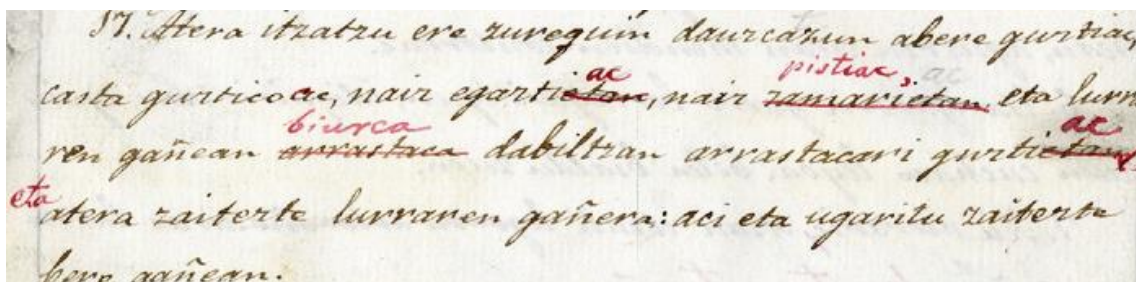 17. Atera itzatzu ere zurequin daurcazun abere gurtiac,
ac pistiac,
casta gurticoac, nair egartietan, nair zamarietan eta lurra
biurca ac
ren gañean arrastaca dabiltzan arrastacari gurtietan
eta atera zaiterte lurraren gañera: aci eta ugaritu zaiterte
bere gañean.